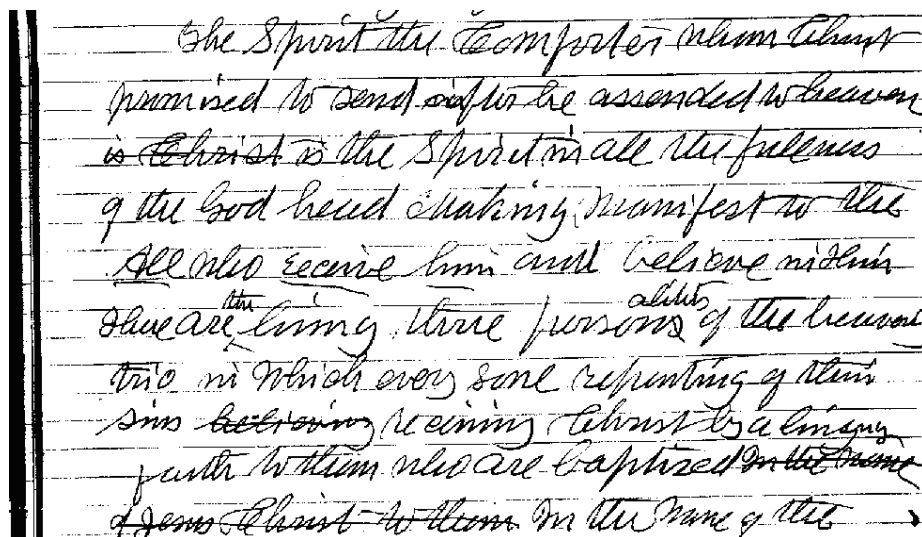 The Spirit the Comforter whom Christ
promised to send after he assended to heaven
is Christ is the Spirit in all the fulness
of the God head making manifest to the
All who receive him and believe in Him
There are the living three persons alities of the heavenly
trio in which every soul repenting of their
sins believing receiving Christ by a living
faith to them who are baptized in the name
of Jesus Christ to them In the name of the